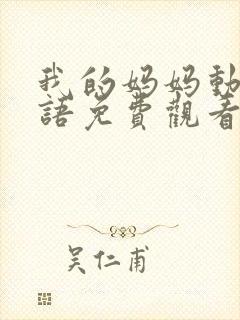 我的妈妈動
語免費觀看
吴仁甫